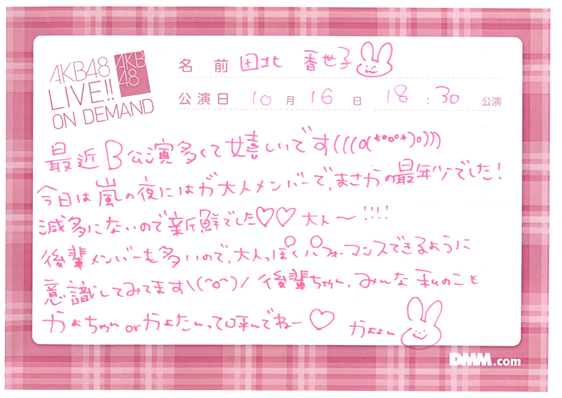 AKB48
LIVE!!
ON DEMAND
AKB
48
名前 田北 香世子
公演日 10月16日 18:30公演
最近B公演多くて嬉しいです(((o(*°▽°*)o)))
今日は嵐の夜にはが大人メンバーで、まさかの最年少でした!
滅多にないので新鮮でした♡♡大人〜!!!!
後輩メンバーも多いので、大人っぽくパフォーマンスできるように
意識してみてます\(^o^)/後輩ちゃん、みんな私のこと
かよちゃんorかよたんって呼んでねー♡ かよよん
DMM.com